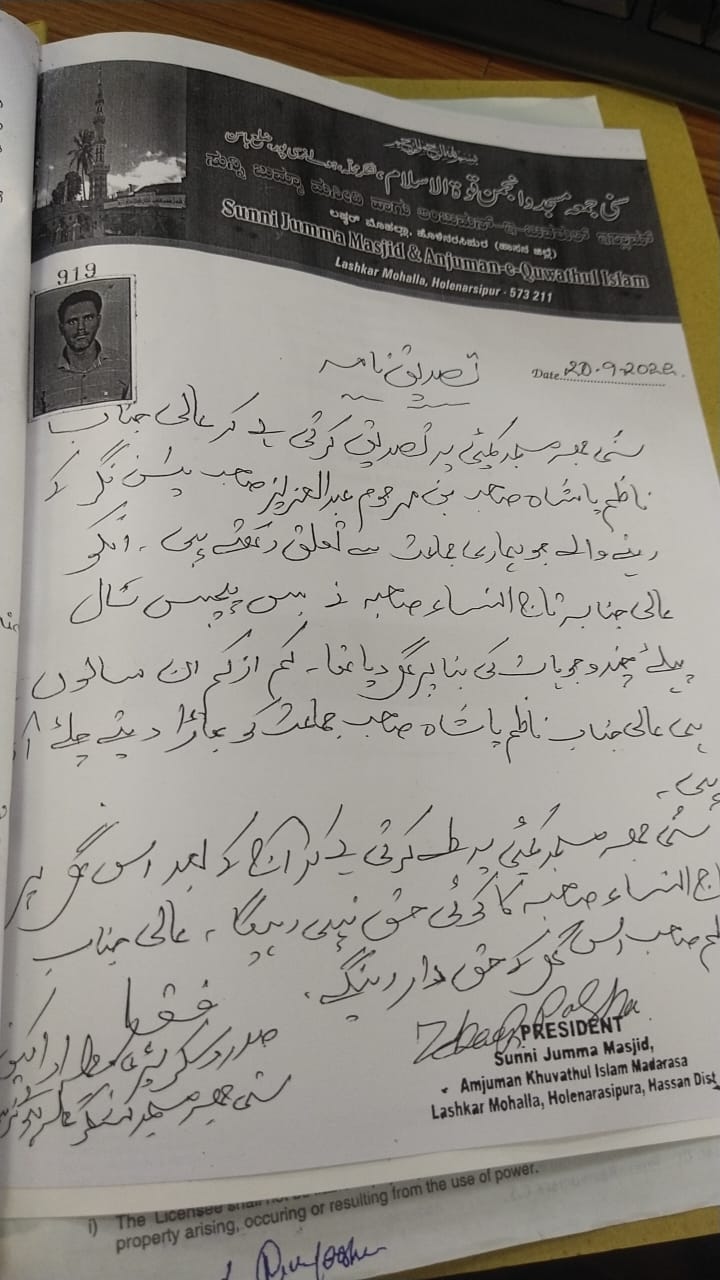 سنی جمعہ مسجد و انجمن قوۃ الاسلام،
ಸುನ್ನಿ ಜುಮ್ಮಾ ಮಸೀದಿ ಹಾಗು ಅಂಜುಮನ್-ಎ-ಖುವತುಲ್ ಇಸ್ಲಾಮ್
ಲಷ್ಕರ್ ಮೊಹಲ್ಲಾ, ಹೊಳೆನರಸಿಪುರ (ಹಾಸನ ಜಿಲ್ಲೆ)
Sunni Jumma Masjid & Anjuman-e-Quwathul Islam
Lashkar Mohalla, Holenarsipur - 573 211
919
تصدیق نامہ
Date 20-9-202
سنی جمعہ مسجد کمیٹی یہ تصدیق کرتی ہے کہ عالی جناب
ناظم پاشاہ صاحب بن مرحوم عبدالعزیز صاحب نگر کے
رہنے والے جو ہماری جماعت سے تعلق رکھتے ہیں۔ انکو
عالی جنابہ تاج النساء صاحبہ نے بیس پچیس سال
پہلے چند وجوہات کی بنا پر گھر دیا تھا۔ کم از کم ان سالوں
میں عالی جناب ناظم پاشاہ صاحب جماعت کو بھاڑا دیتے چلے آ
ہیں۔
سنی جمعہ مسجد کمیٹی یہ طے کرتی ہے کہ آج کے بعد اس گھر پر
تاج النساء صاحبہ کا کوئی حق نہیں رہیگا۔ عالی جناب
صاحب اس گھر کے حق دار رہینگے۔
فقط
صدر و سکریٹری
سنی جمعہ مسجد
PRESIDENT
Sunni Jumma Masjid,
Amjuman Khuvathul Islam Madarasa
Lashkar Mohalla, Holenarasipura, Hassan Dist
i) The Licensee shall not be
property arising, occuring or resulting from the use of power.